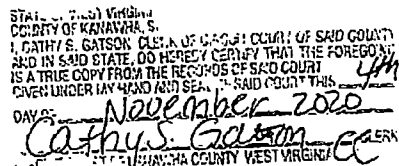 STATE OF WEST VIRGINIA
COUNTY OF KANAWHA, S.
I, CATHY S. GATSON, CLERK OF CIRCUIT COURT OF SAID COUNTY
AND IN SAID STATE, DO HEREBY CERTIFY THAT THE FOREGOING
IS A TRUE COPY FROM THE RECORDS OF SAID COURT
GIVEN UNDER MY HAND AND SEAL SAID COURT THIS 4th
DAY OF November 2020
Cathy S. Gatson CLERK
KANAWHA COUNTY WEST VIRGINIA